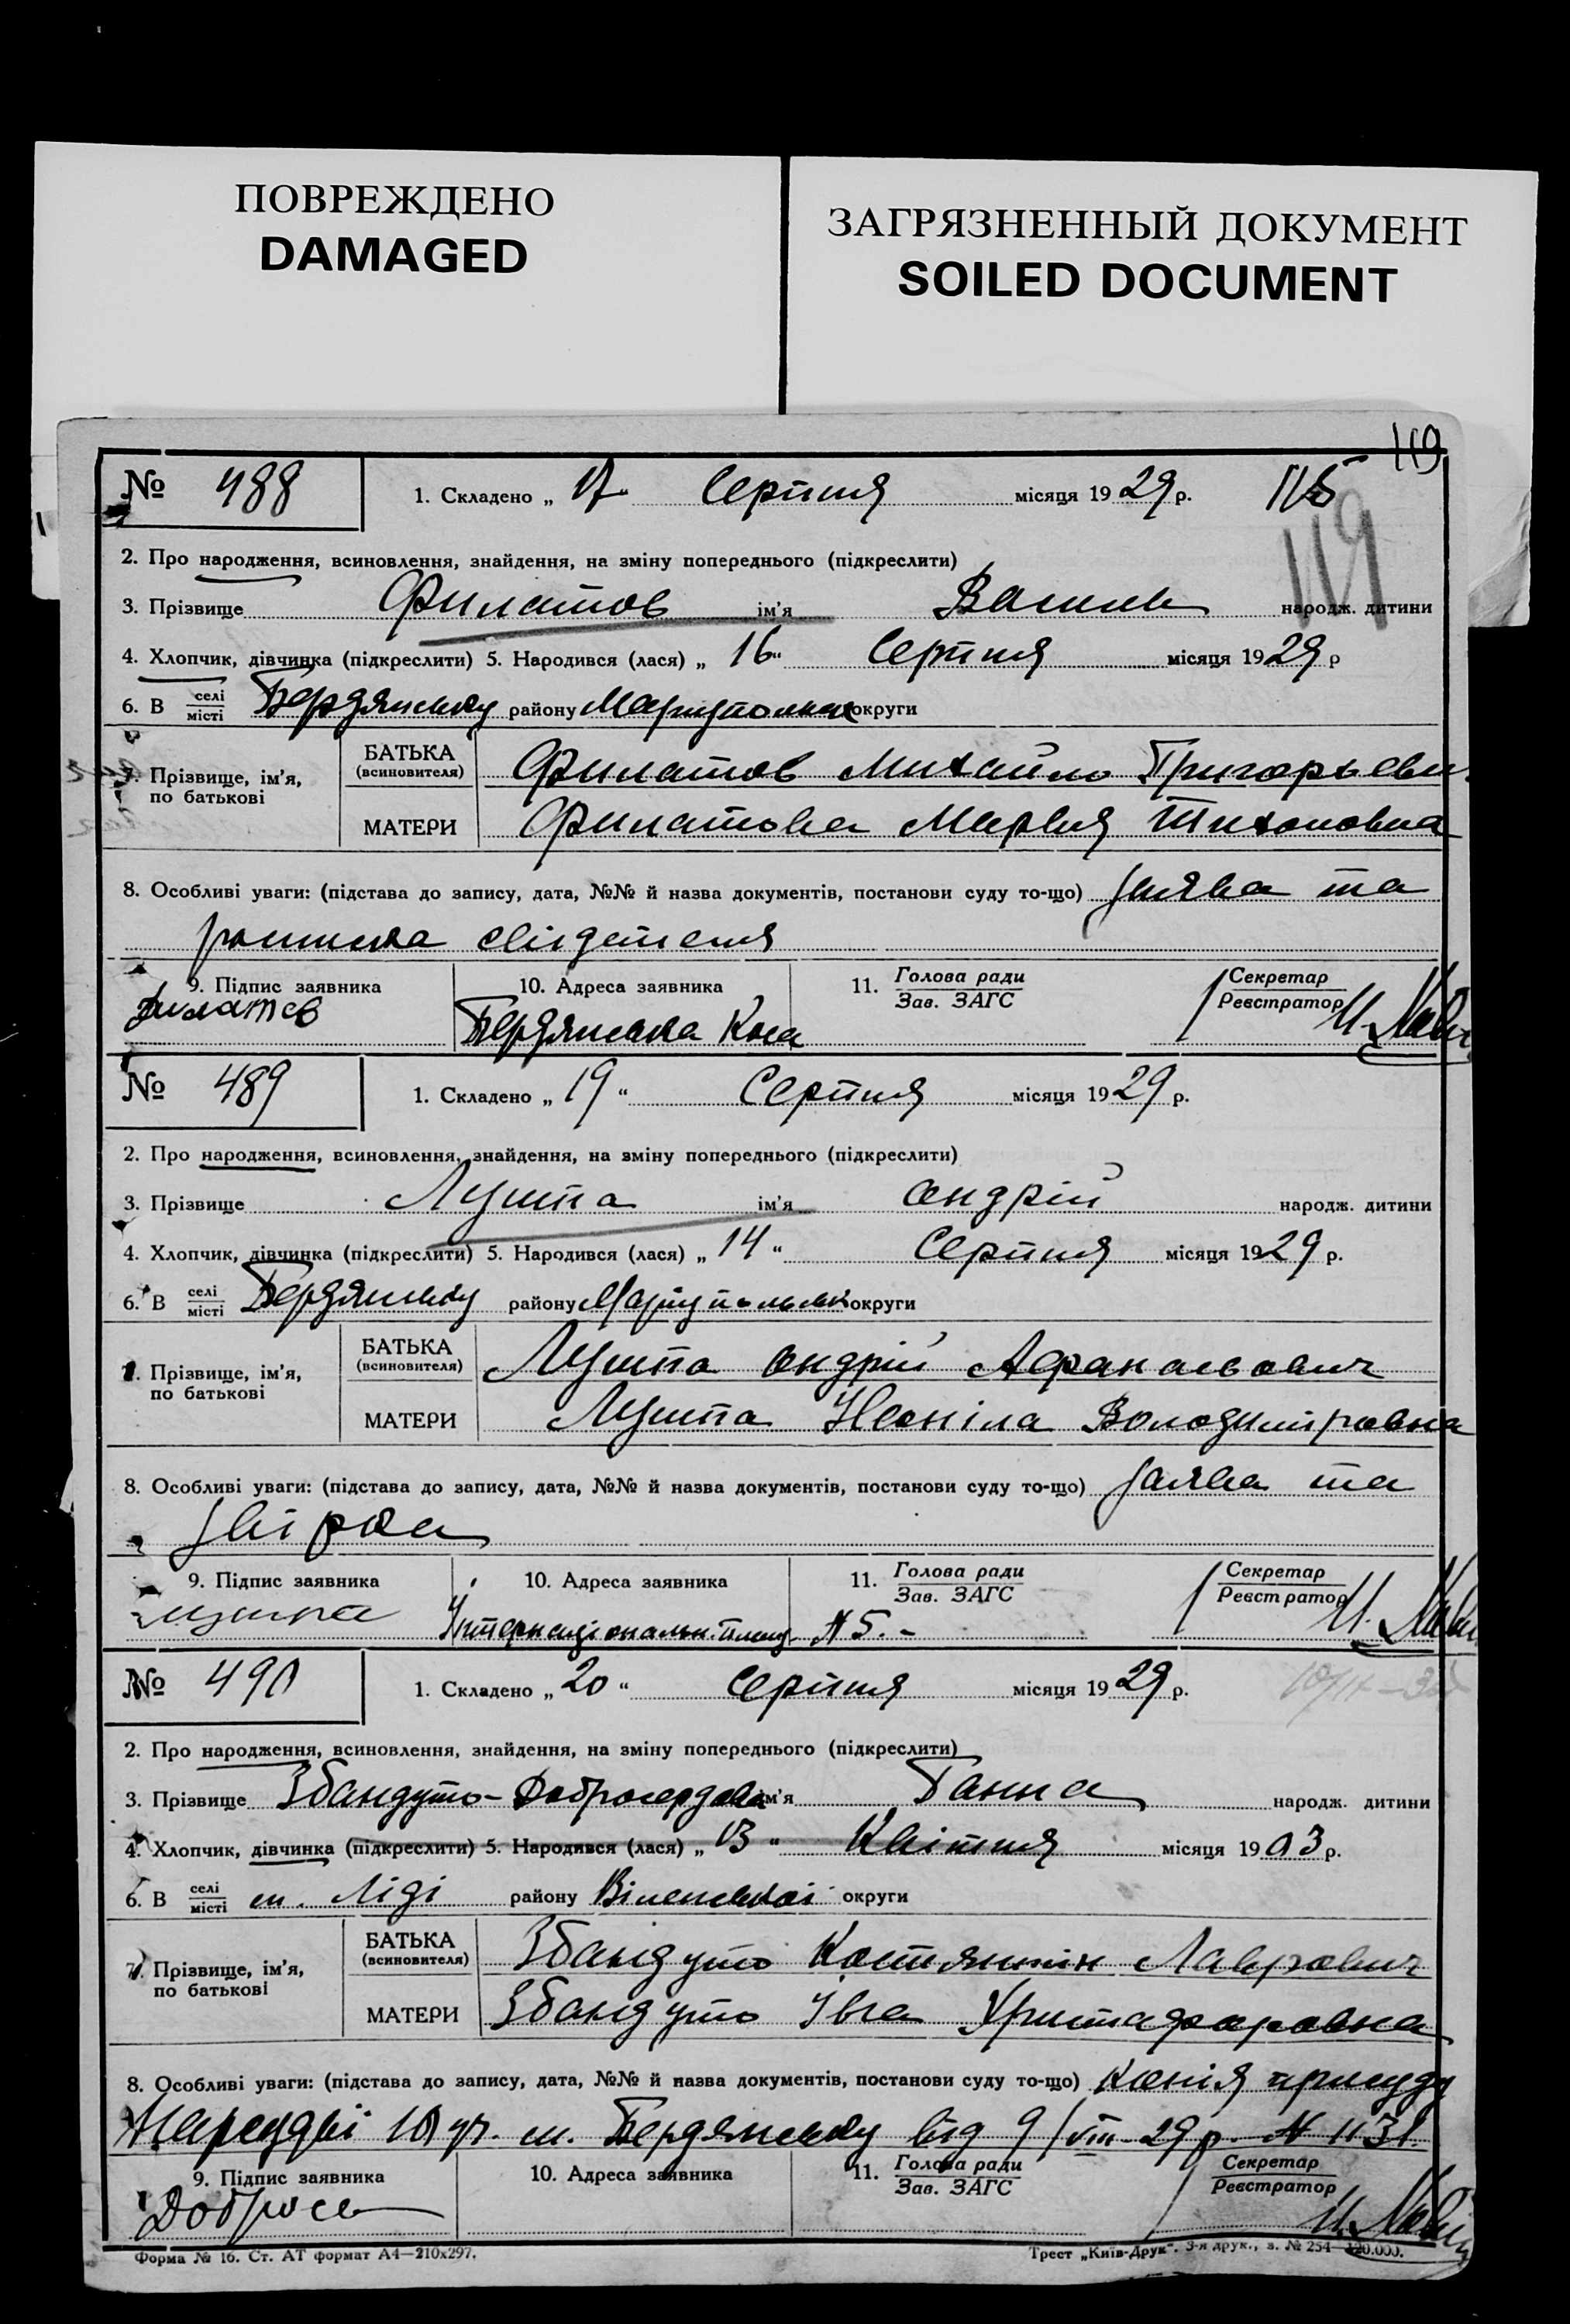 ПОВРЕЖДЕНО
DAMAGED
ЗАГРЯЗНЕННЫЙ ДОКУМЕНТ
SOILED DOCUMENT
119
№ 488 1. Складено „ 17 Серпня місяця 1929 р. 115
119
2. Про народження, всиновлення, знайдення, на зміну попереднього (підкреслити)
3. Прізвище Филатов ім'я Василь народж. дитини
4. Хлопчик, дівчинка (підкреслити) 5. Народився (лася) „ 16 “ Серпня місяця 1929 р
6. В селі місті Бердянську району Маріупольськ округи
7. Прізвище, ім'я, по батькові
БАТЬКА (всиновителя) Филатов Михайло Григорьеви
МАТЕРИ Филатова Мария Тихоновна
8. Особливі уваги: (підстава до запису, дата, №№ й назва документів, постанови суду то-що) Заява та
розписка свідетеля
9. Підпис заявника 10. Адреса заявника 11. Голова ради Зав. ЗАГС Секретар Реєстратор
Филатов Бердянська Коса
№ 489 1. Складено „ 19 “ Серпня місяця 1929 р.
2. Про народження, всиновлення, знайдення, на зміну попереднього (підкреслити)
3. Прізвище Лушпа ім'я Андрій народж. дитини
4. Хлопчик, дівчинка (підкреслити) 5. Народився (лася) „ 14 “ Серпня місяця 1929 р.
6. В селі місті Бердянську району Маріупольськ округи
7. Прізвище, ім'я, по батькові
БАТЬКА (всиновителя) Лушпа Андрій Афанасьович
МАТЕРИ Лушпа Неоніла Володимировна
8. Особливі уваги: (підстава до запису, дата, №№ й назва документів, постанови суду то-що) Заява та
звірка
9. Підпис заявника 10. Адреса заявника 11. Голова ради Зав. ЗАГС Секретар Реєстратор
Лушпа Інтернаціональн. № 5. –
№ 490 1. Складено „ 20 “ Серпня місяця 1929 р.
2. Про народження, всиновлення, знайдення, на зміну попереднього (підкреслити)
3. Прізвище Збандуто-Добросердова ім'я Ганна народж. дитини
4. Хлопчик, дівчинка (підкреслити) 5. Народився (лася) „ 13 “ Квітня місяця 1903 р.
6. В селі місті м. Ліді району Віленської округи
7. Прізвище, ім'я, по батькові
БАТЬКА (всиновителя) Збандуто Костянтин Лаврович
МАТЕРИ Збандуто Івга Христафоровна
8. Особливі уваги: (підстава до запису, дата, №№ й назва документів, постанови суду то-що) Копія присуду
Нарсудві 10 м. Бердянську від 9/VIII 29 р. № 1131.
9. Підпис заявника 10. Адреса заявника 11. Голова ради Зав. ЗАГС Секретар Реєстратор
Добросе
Форма № 16. Ст. АТ формат А4—210х297. Трест „Київ-Друк“. 3-я друк., з. № 254—120.000.